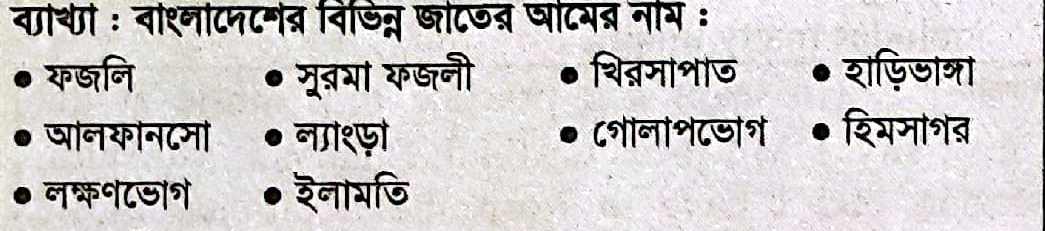 ব্যাখ্যা : বাংলাদেশের বিভিন্ন জাতের আমের নাম :
• ফজলি • সুরমা ফজলী • খিরসাপাত • হাড়িভাঙ্গা
• আলফানসো • ল্যাংড়া • গোলাপভোগ • হিমসাগর
• লক্ষণভোগ • ইলামতি